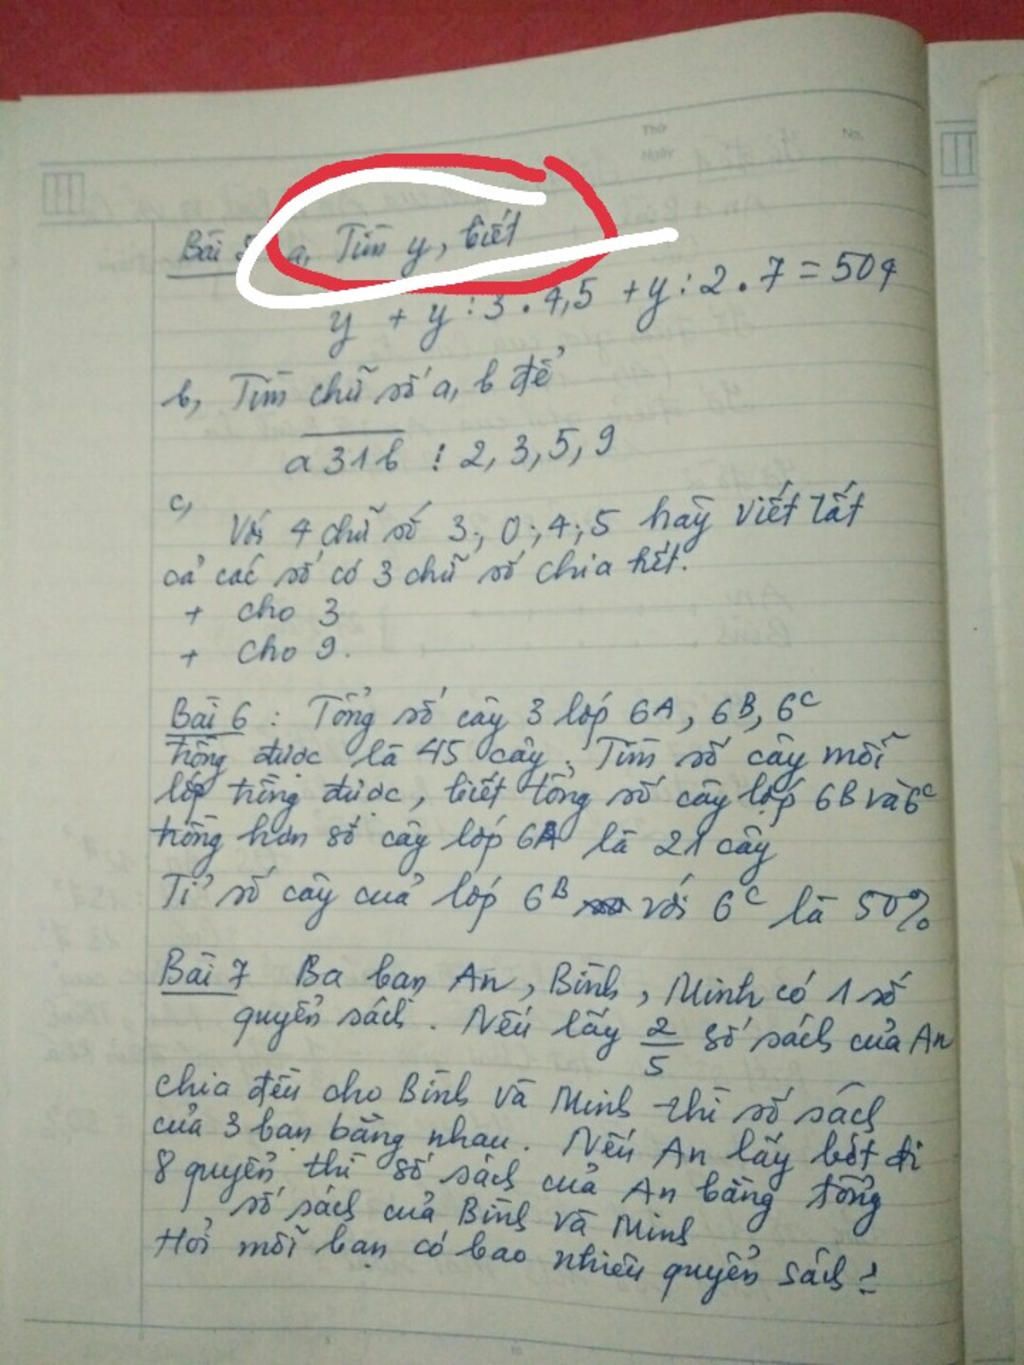 Thứ
Ngày
No.
Bài 5 a, Tìm y, biết
y + y : 3 . 4,5 + y : 2 . 7 = 504
b, Tìm chữ số a, b để
a31b ⋮ 2, 3, 5, 9
c,
Với 4 chữ số 3; 0; 4; 5 hãy viết tất
cả các số có 3 chữ số chia hết.
+ cho 3
+ cho 9.
Bài 6 : Tổng số cây 3 lớp 6A, 6B, 6C
trồng được là 45 cây. Tìm số cây mỗi
lớp trồng được, biết tổng số cây lớp 6B và 6C
trồng hơn số cây lớp 6A là 21 cây
Tỉ số cây của lớp 6B với 6C là 50%
Bài 7 Ba bạn An, Bình, Minh có 1 số
quyển sách. Nếu lấy 2/5 số sách của An
chia đều cho Bình và Minh thì số sách
của 3 bạn bằng nhau. Nếu An lấy bớt đi
8 quyển thì số sách của An bằng tổng
số sách của Bình và Minh
Hỏi mỗi bạn có bao nhiêu quyển sách ?